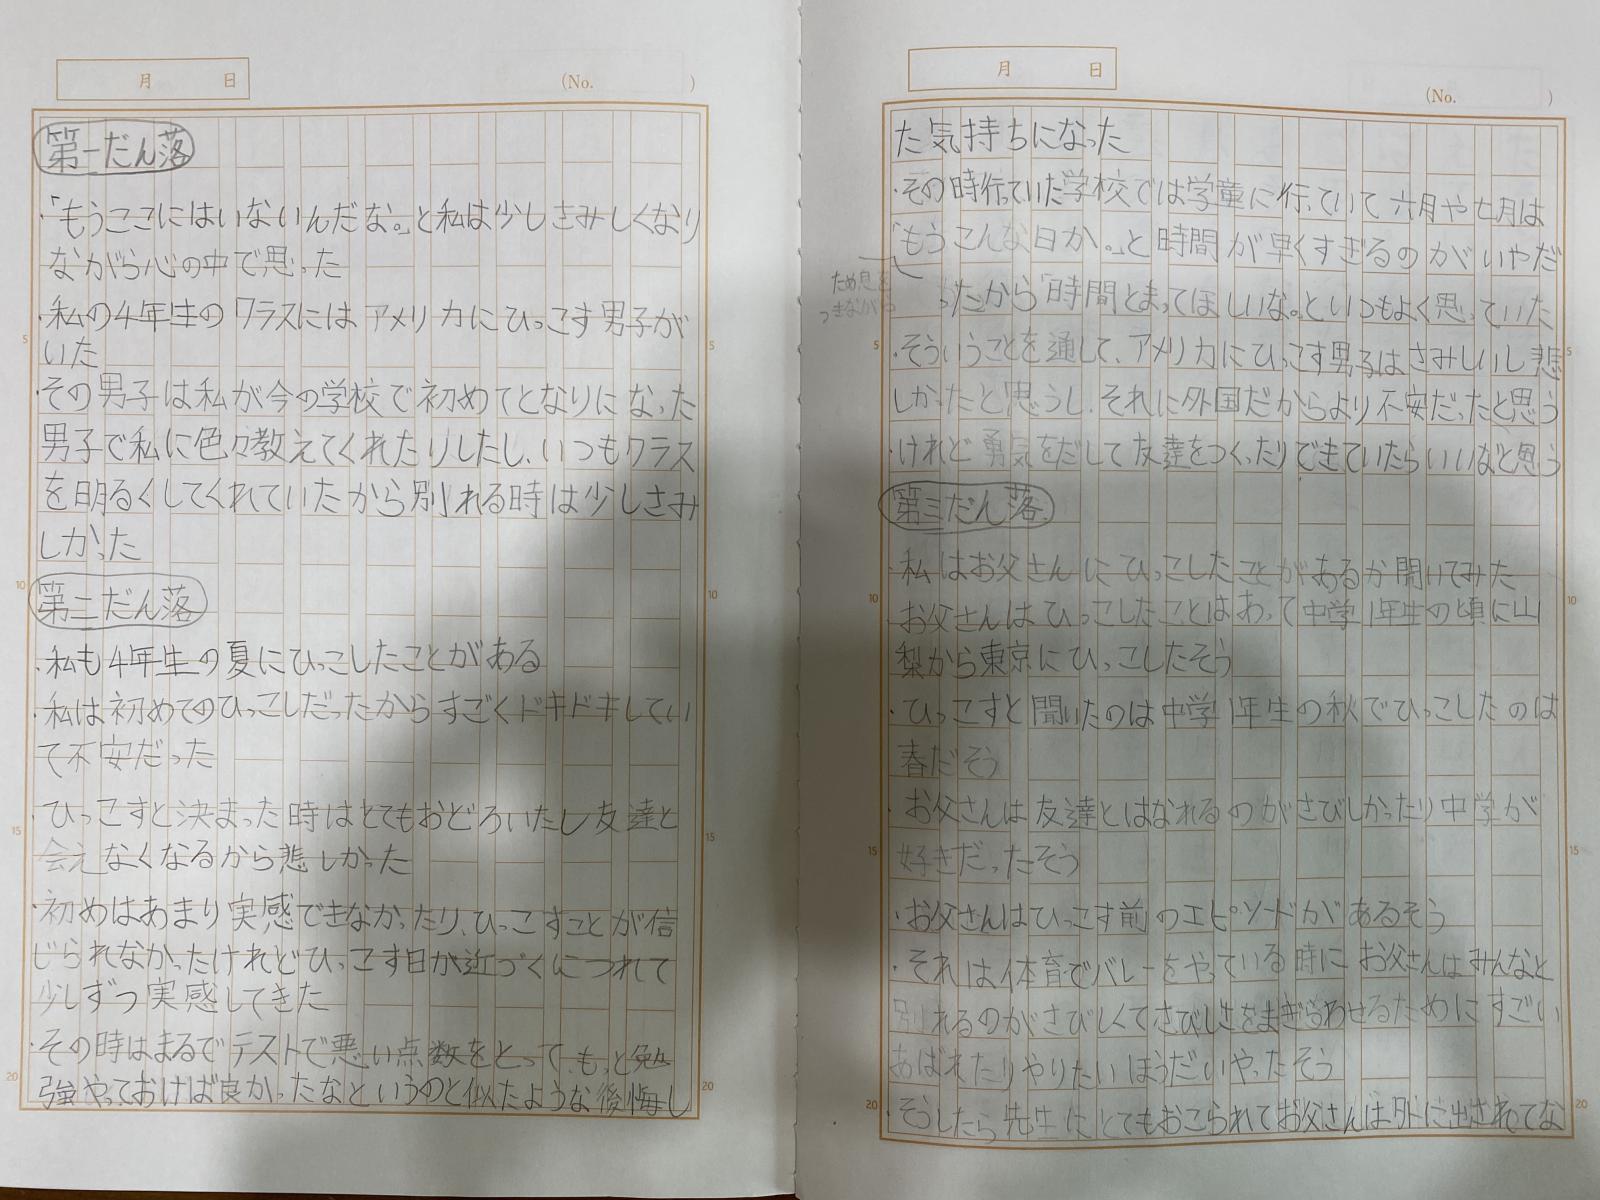 月 日
(No. )
第一だん落
・「もうここにはいないんだな。」と私は少しさみしくなり
ながら心の中で思った
・私の4年生のクラスにはアメリカにひっこす男子が
いた
・その男子は私が今の学校で初めてとなりになった
男子で私に色々教えてくれたりしたし、いつもクラス
を明るくしてくれていたから別れる時は少しさみ
しかった
第二だん落
・私も4年生の夏にひっこしたことがある
・私は初めてのひっこしだったからすごくドキドキしてい
て不安だった
・ひっこすと決まった時はとてもおどろいたし友達と
会えなくなるから悲しかった
・初めはあまり実感できなかったり、ひっこすことが信
じられなかったけれどひっこす日が近づくにつれて
少しずつ実感してきた
・その時はまるでテストで悪い点数をとって、もっと勉
強やっておけば良かったなというのと似たような後悔し
5
10
15
20
月 日
(No. )
た気持ちになった
・その時行っていた学校では学童に行っていて六月や七月は
「もうこんな日か。」と時間が早くすぎるのがいやだ
ため息を
つきながら
ったから「時間とまってほしいな。」といつもよく思っていた
・そういうことを通して、アメリカにひっこす男子はさみしいし悲
しかったと思うし、それに外国だからより不安だったと思う
・けれど勇気をだして友達をつくったりできていたらいいなと思う
第三だん落
・私はお父さんにひっこしたことがあるか聞いてみた
・お父さんはひっこしたことはあって中学1年生の頃に山
梨から東京にひっこしたそう
・ひっこすと聞いたのは中学1年生の秋でひっこしたのは
春だそう
・お父さんは友達とはなれるのがさびしかったり中学が
好きだったそう
・お父さんはひっこす前のエピソードがあるそう
・それは体育でバレーをやっている時にお父さんはみんなと
別れるのがさびしくてさびしさをまぎらわせるためにすごい
あばれたりやりたいほうだいやったそう
・そうしたら先生にとてもおこられてお父さんは外に出されてな
5
10
15
20